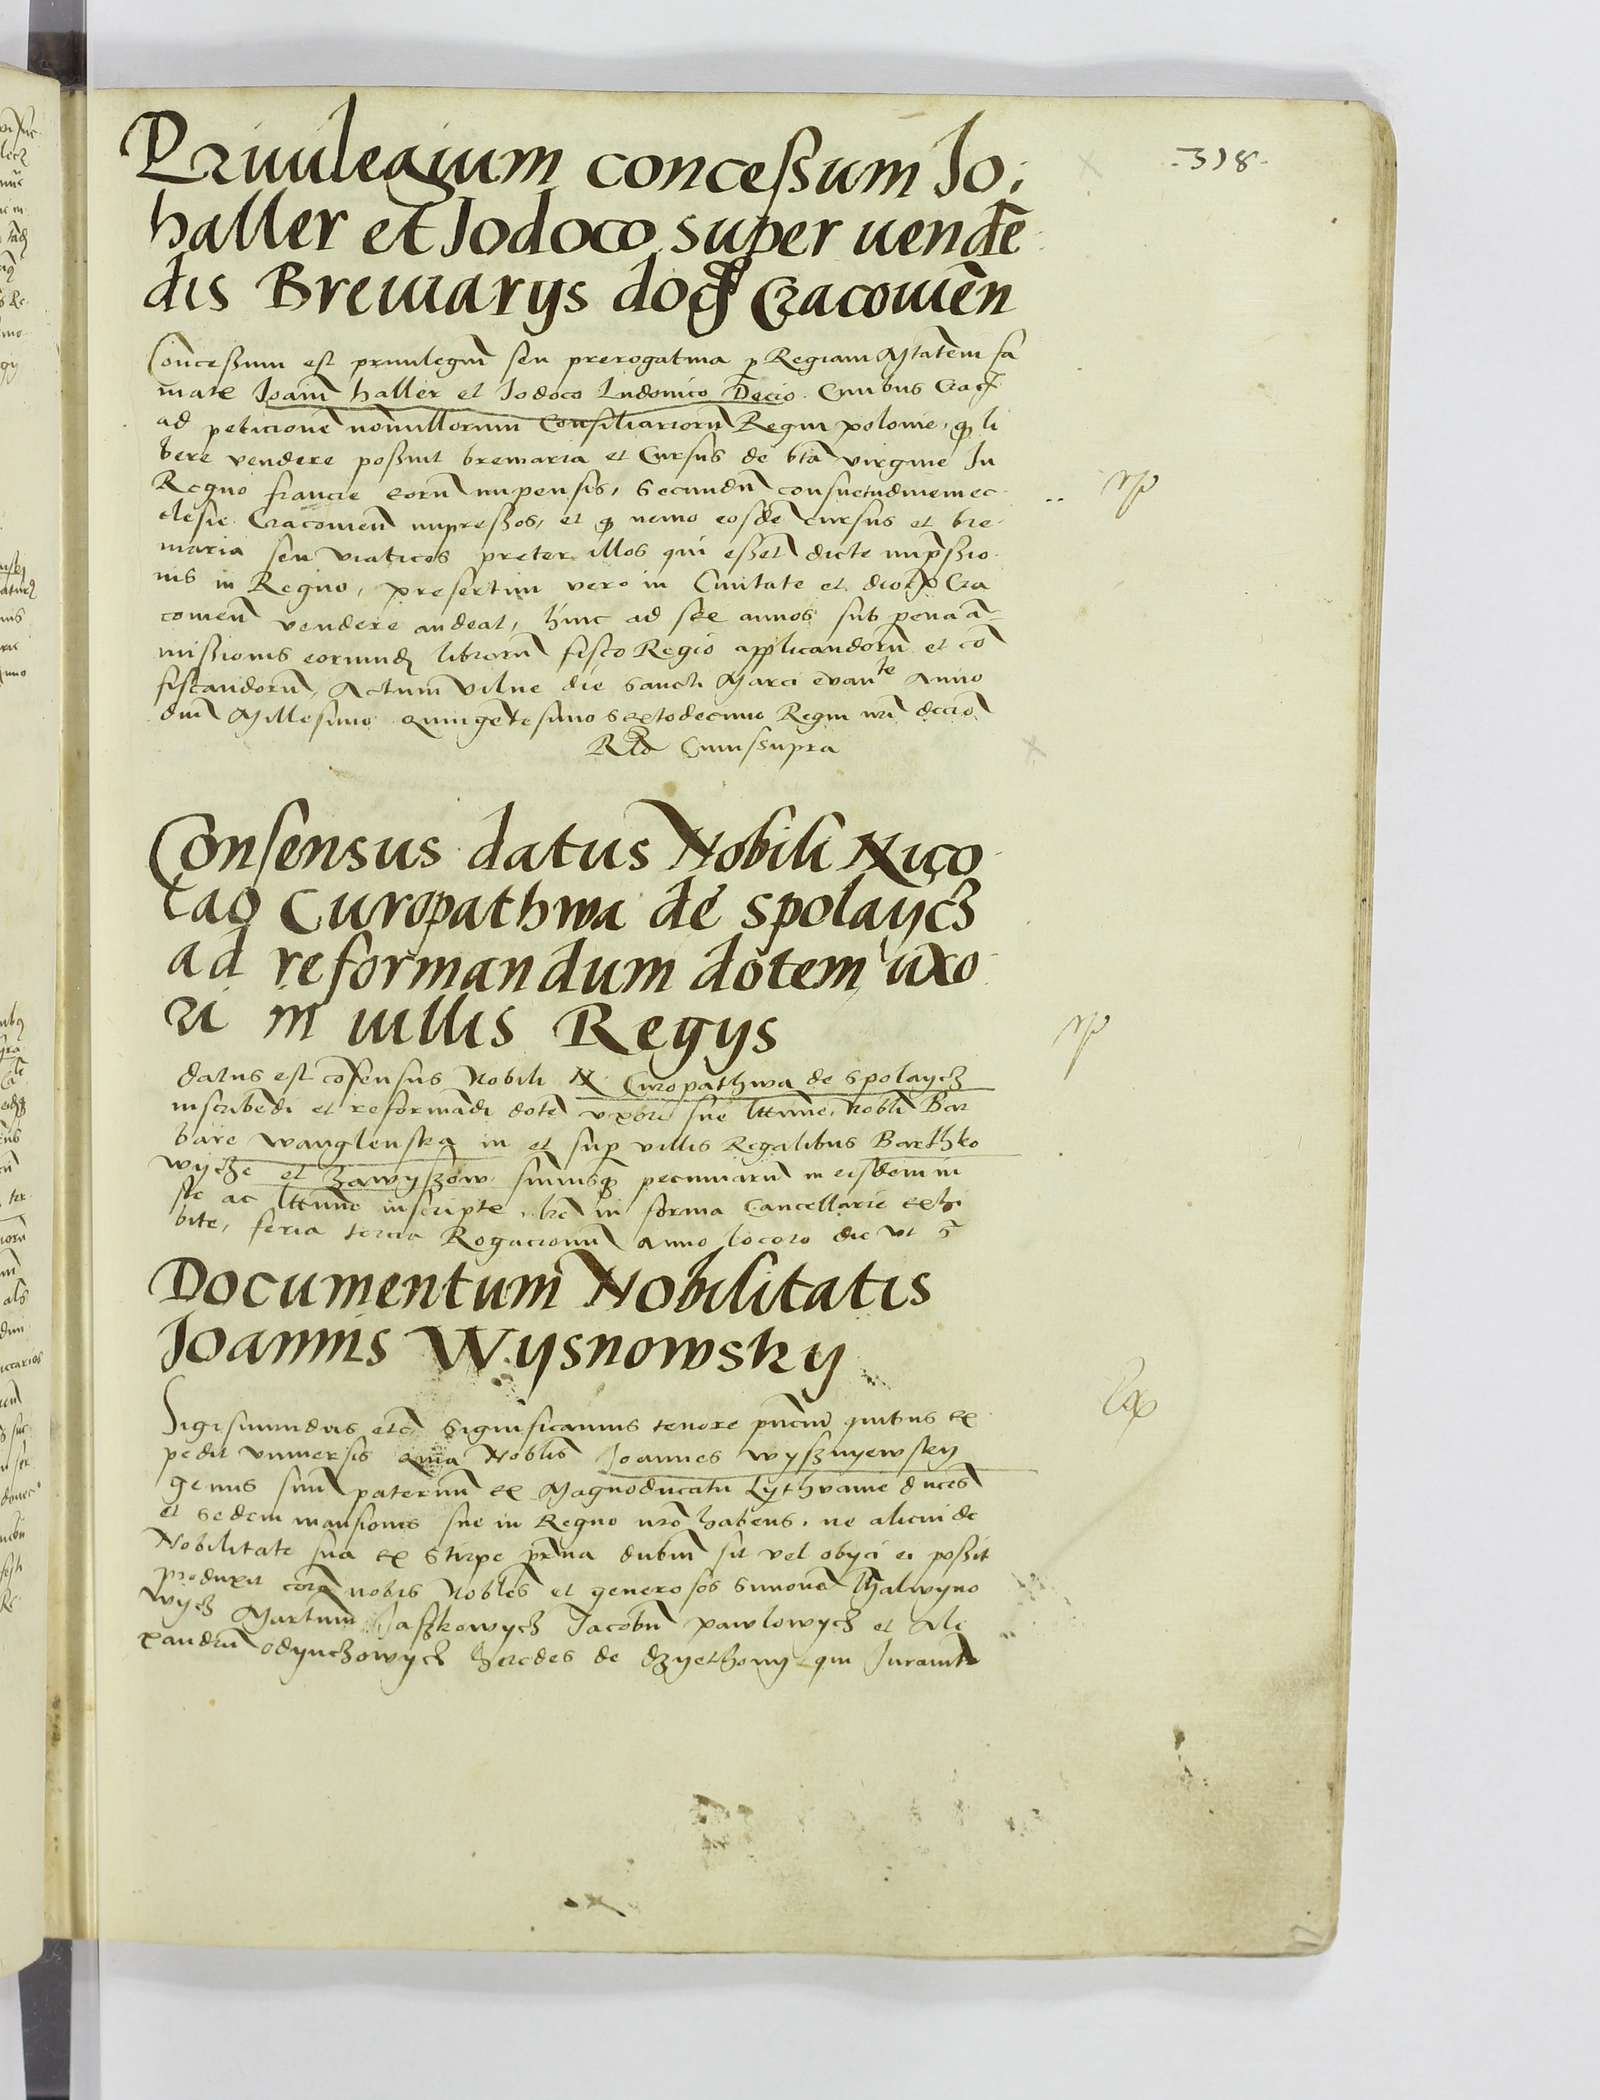 -318-
Priuilegium concessum Jo:
haller et Jodoco super uende
dis Breuiarys dioc Cracouien
Concessum est priuilegiu seu prerogatiua p Regiam Mtatem fa
matis Joani haller et Jodoco Ludouico Decio Ciuibus Crac
ad peticione nonnullorum Consiliarioru Regni polonie, q li
bere vendere possint breuiaria et Cursus de bta virgine In
Regno francie eoru impensis, Secundu consuetudinem ec
clesie Cracouien impressos, et q nemo eosde cursus et bre
uiaria seu viaticos preter illos qui essent dicte impssio
nis in Regno, presertim vero in Ciuitate et dioc Cra
couien vendere audeat, hinc ad sex annos sub pena a
missionis eorumd libroru fisco Regio applicandoru et co
fiscandoru, Actum Vilne die Sancti Marci evante Anno
dni Millesimo quingetesimo Sextodecimo Regni nri decio
Rlo Cuiussupra
Consensus datus Nobili Nico
lao Curopathwa de Spolaycz
ad reformandum dotem uxo
ri in uillis Regys
datus est cosensus Nobili N Curopathwa de Spolaycz
inscribedi et reformadi dote vxori sue lttime Nobli Bar
bare Wanglenska in et sup villis Regalibus Barthko
wycze et Zawyszow sumisq pecuniaru in eisdem iu
ste ac lttime inscripte, in forma Cancellarie exhi
bite, feria tercia Rogacionu Anno loco die vt s
Documentum Nobilitatis
Joannis Wysnowsky
Sigismundus etc Significamus tenore pntiu quibus ex
pedit vniuersis quia Noblis Joannes Wysznyewsky
genus suu paternu ex Magnoducatu Lythuanie ducens
et sedem mansionis sue in Regno nro habens, ne alicui de
Nobilitate sua ex stirpe prna dubiu sit vel obyci ei possit
produxit cora nobis Nobles et generosos Simone Thalwyno
wycz Martinu Jaszkowycz Jacobu pawlowycz et Ale
xandru Odynczowycz heredes de dzyethony qui Juramto